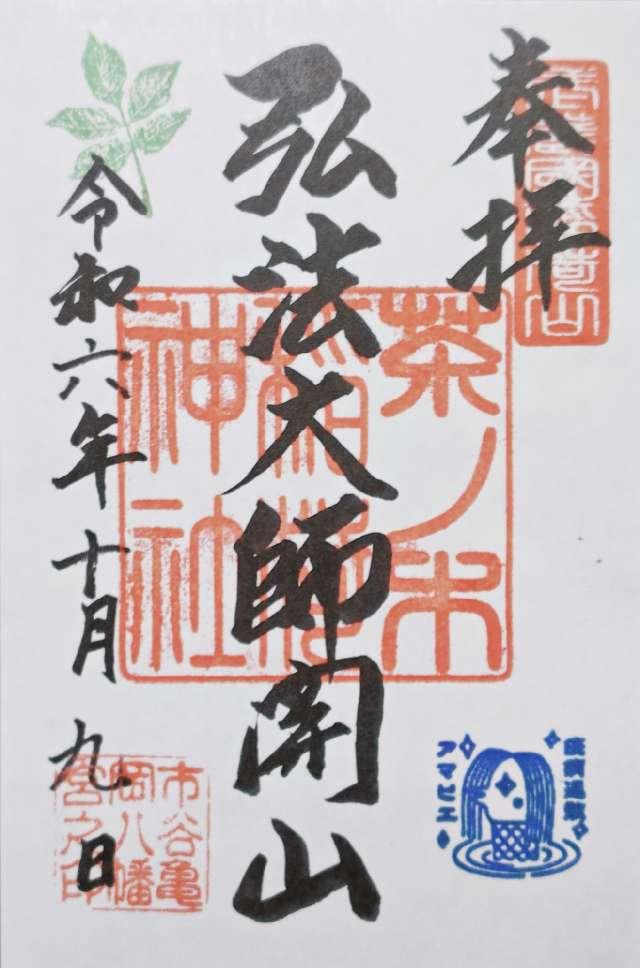 奉拝
弘法大師開山
茶ノ木
稲荷
神社
令和六年十月九日
アマビエ
市谷亀
岡八幡
宮之印